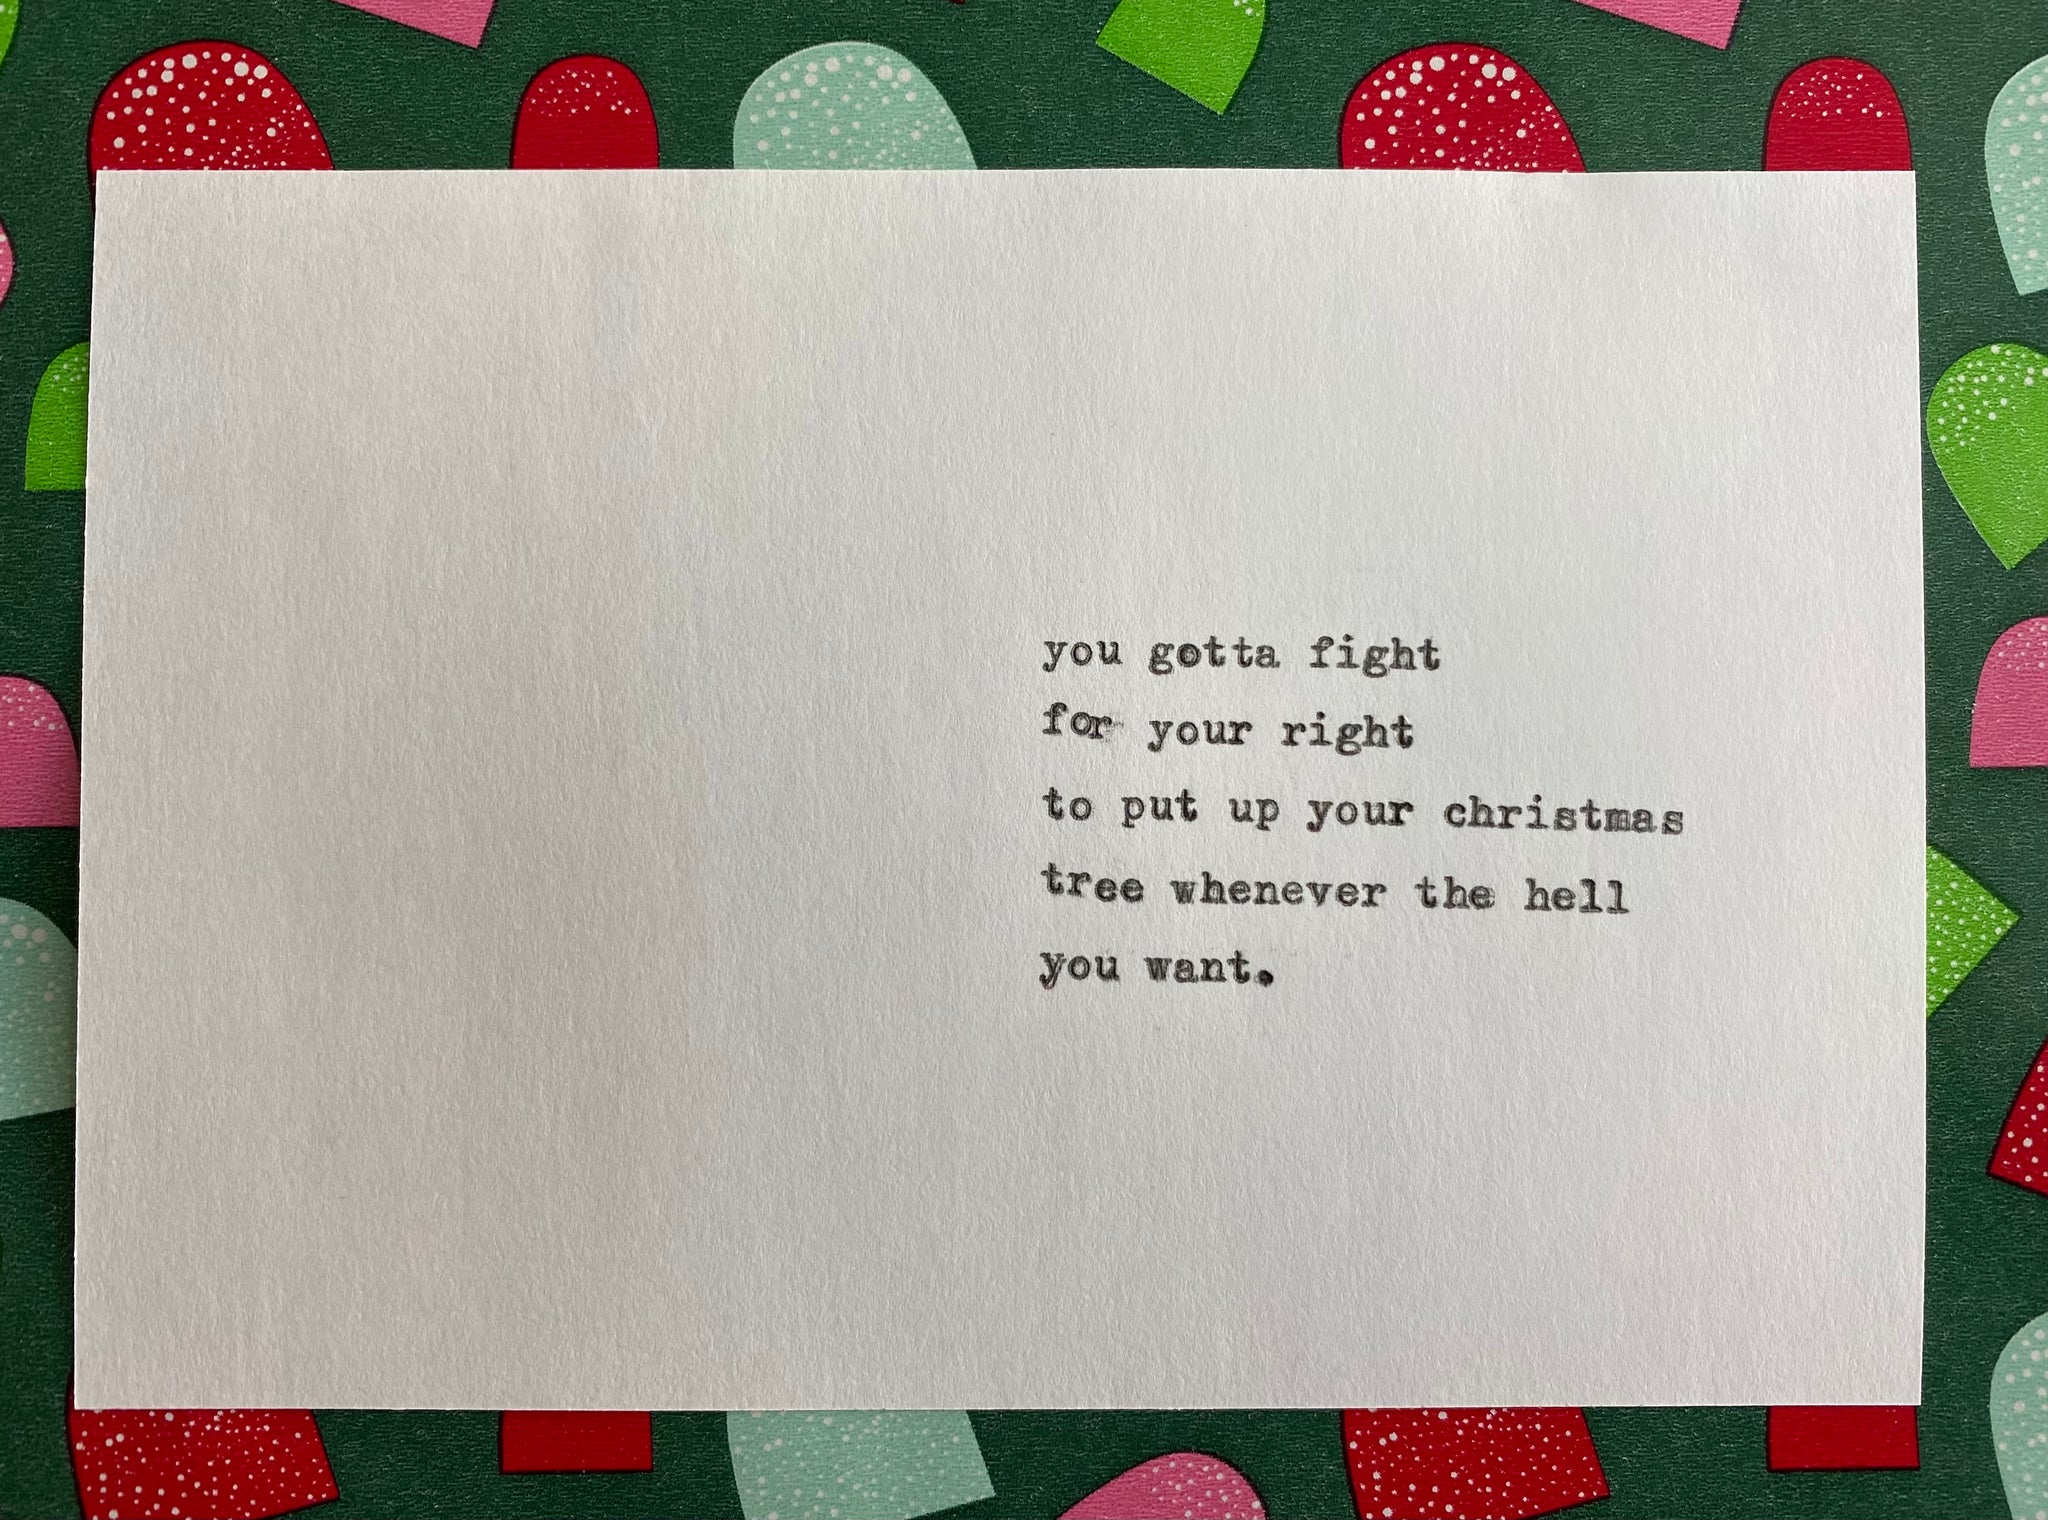 you gotta fight
for your right
to put up your christmas
tree whenever the hell
you want.